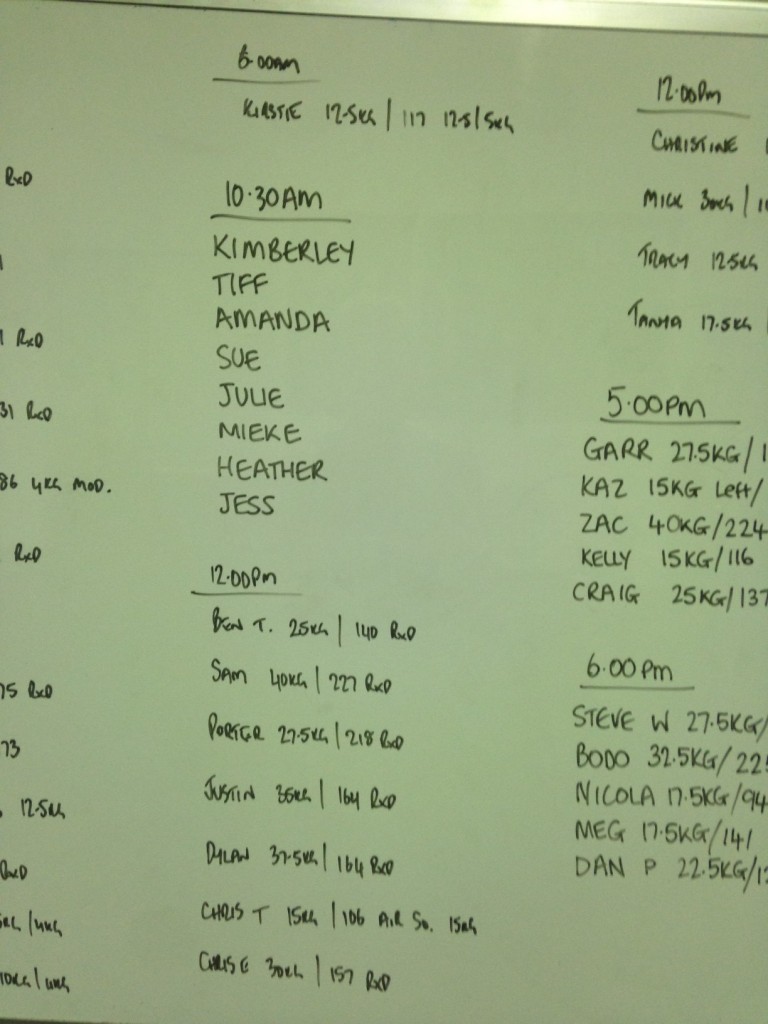 RxD
1 RxD
31 RxD
86 4KG MOD.
RxD
75 RxD
73
12.5KG
RxD
5KG/4KG
10KG/4KG
6.00AM
KIRSTIE 12.5KG | 117 12.5/5KG
10.30AM
KIMBERLEY
TIFF
AMANDA
SUE
JULIE
MIEKE
HEATHER
JESS
12.00PM
BEN T. 25KG | 140 RxD
SAM 40KG | 227 RxD
PORTER 27.5KG | 218 RxD
JUSTIN 35KG | 164 RxD
DYLAN 37.5KG | 164 RxD
CHRIS T 15KG | 106 AIR SQ. 15KG
CHRIS E 30KG | 157 RxD
12.00PM
CHRISTINE
MICK 30KG |
TRACY 12.5KG
TANYA 17.5KG
5.00PM
GARR 27.5KG/1
KAZ 15KG Left/
ZAC 40KG/224
KELLY 15KG/116
CRAIG 25KG/137
6.00PM
STEVE W 27.5KG/
BODO 32.5KG/225
NICOLA 17.5KG/94
MEG 17.5KG/141
DAN P 22.5KG/1